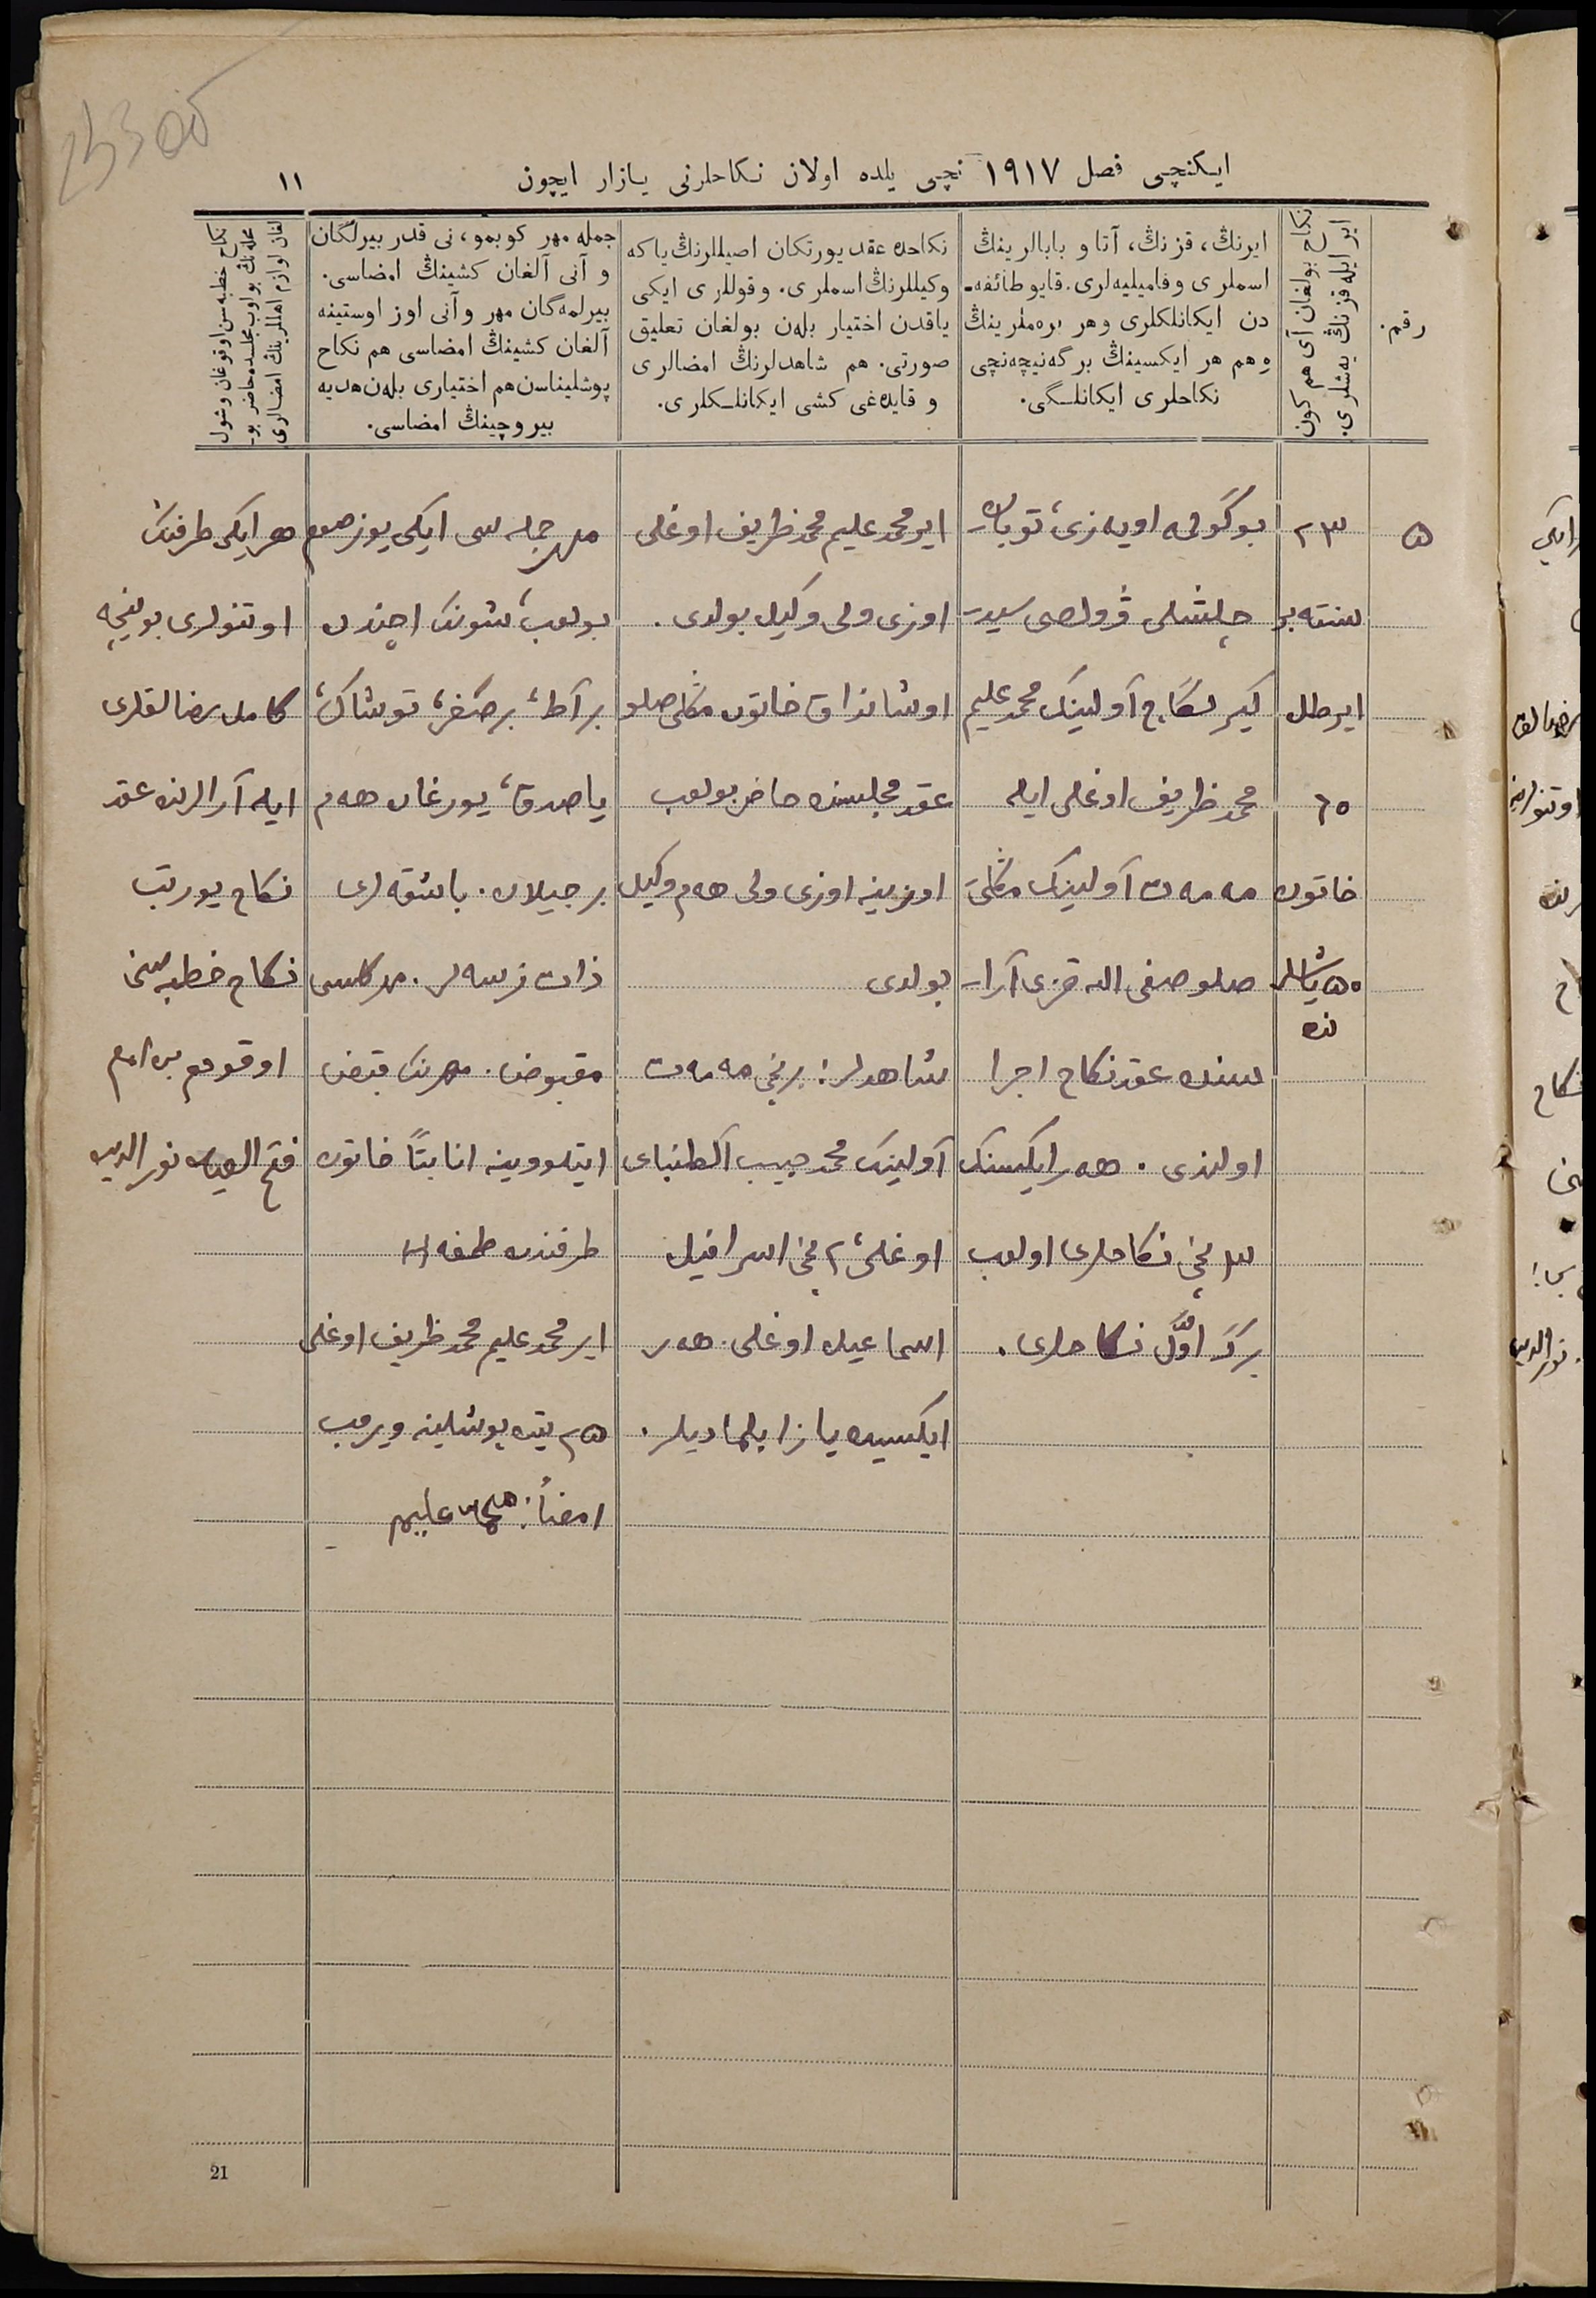 ایکنچی فصل ١٩١٧ نچی یلده اولان نکاحلرنی یازار ایچون
١١
رقم.
نکاح بولغان آی هم کون
ایر ایله قزنڭ یەشلری.
ایرنڭ، قزنڭ، آتا و بابالرینڭ
اسملری و فامیلیەلری. قایو طائفه‌ـ
دن ایکانلکلری وهر برەملرینڭ
وهم هر ایکسینڭ برگه نیچەنچی
نکاحلری ایکانلـگی.
نکاحدە عقد یورتکان اصیللرنڭ یا که
وکیللرنڭ اسملری. وقوللری ایکی
یاقدن اختیار بلەن بولغان تعلیق
صورتی. هم شاهدلرنڭ امضالری
و قایدەغی کشی ایکانلـکلری.
جمله مهر کوبمو، نی قدر بیرلگان
و آنی آلغان کشینڭ امضاسی.
بیرلمەگان مهر وآنی اوز اوستینه
آلغان کشینڭ امضاسی هم نکاح
پوشلیناسن هم اختیاری بلەن هدیه
بیروچینڭ امضاسی.
نکاح خطبەسن اوقوغان وشول
محلەنڭ بولوب مجلسدە حاضر بو‌ـ
لغان لوازم اهللرینڭ امضالری
٥
٢٣
سنتەبر
ایر طل
٦٥
خاتون
٥٠ یاشلر
ندە
بوگولمه اویەزی، توبان
چلشلی ڤولصی سید
کیر سگاچ آولینڭ محمد علیم
محمد ظریف اوغلی ایله
مەمەت آولینڭ مڭلی
صلو صفی الله قزی آرا
سنده عقد نکاح اجرا
اولندی. هەر ایکیسنڭ
٣ نچی نکاحلری اولوب
برگە اوّل نکاحلری.
ایر محمد علیم محمد ظریف اوغلی
اوزی ولی وکیل بولدی.
اوشانداق خاتون مڭلی صلو
عقد مجلسنده حاضر بولوب
اوزینه اوزی ولی هەم وکیل
بولدی
شاهدلر: برنچی مەمەت
آولینڭ محمد حبیب آلطنبای
اوغلی، ٢ نچی اسرافیل
اسماعیل اوغلی. هەر
ایکسیده یازا بلمادیلر.
مهر جمله سی ایکی یوز صوم
بولوب، شونڭ اچندن
بر آط، بر صگر، توشاک،
یاصدق، یورغان هەم
بر جیلان. باشقه لری
ذات نرسه لر. مهر کلسی
مقبوض. مهرنڭ قبض
ایتلووینه اثباتاً خاتون
طرفندن طمغه
ایر محمد علیم محمد ظریف اوغلی
٢٥ تیه پوشلینه ویروب
امضاً: محمد علیم
هر ایکی طرفنڭ
اوتنولری بوینچه
کامل رضالقلری
ایله آرالرنده عقد
نکاح یورتب
نکاح خطبه سنی
اوقودم من امام
فتح العیان نور الدین
21